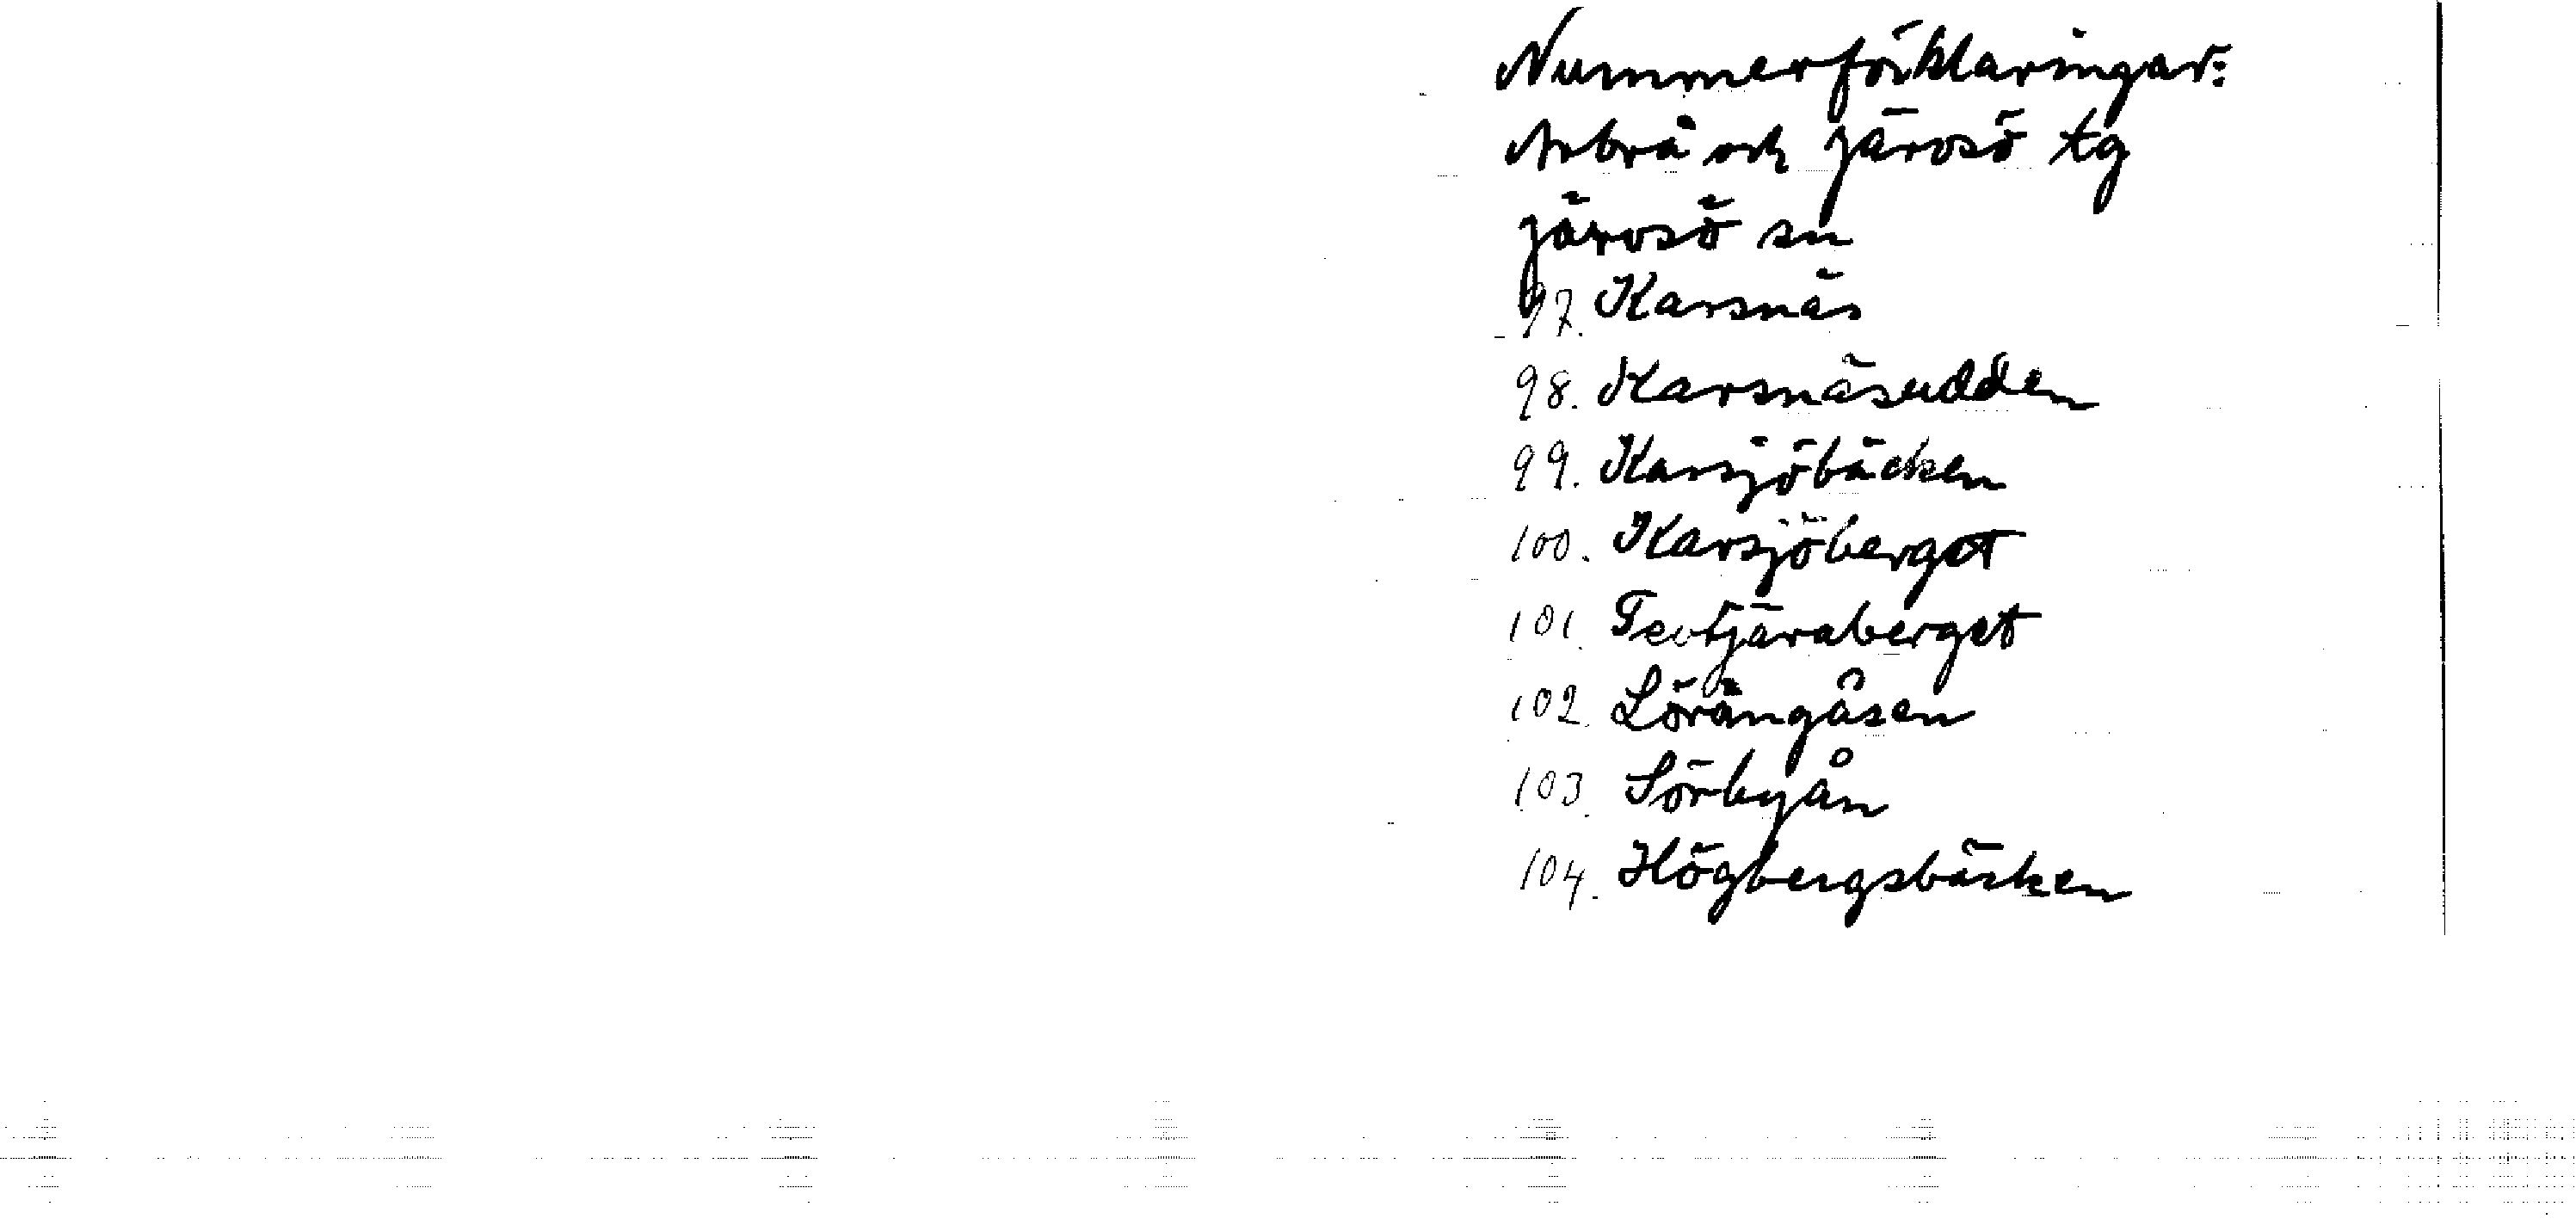 Nummerförklaringar:
Arbrå och Järvsö tg
Järvsö sn
97. Karsnäs
98. Karsnäsudden
99. Karsjöbäcken
100. Karsjöberget
101. Tevtjäraberget
102. Lörångåsen
103. Sörbyån
104. Högbergsbäcken